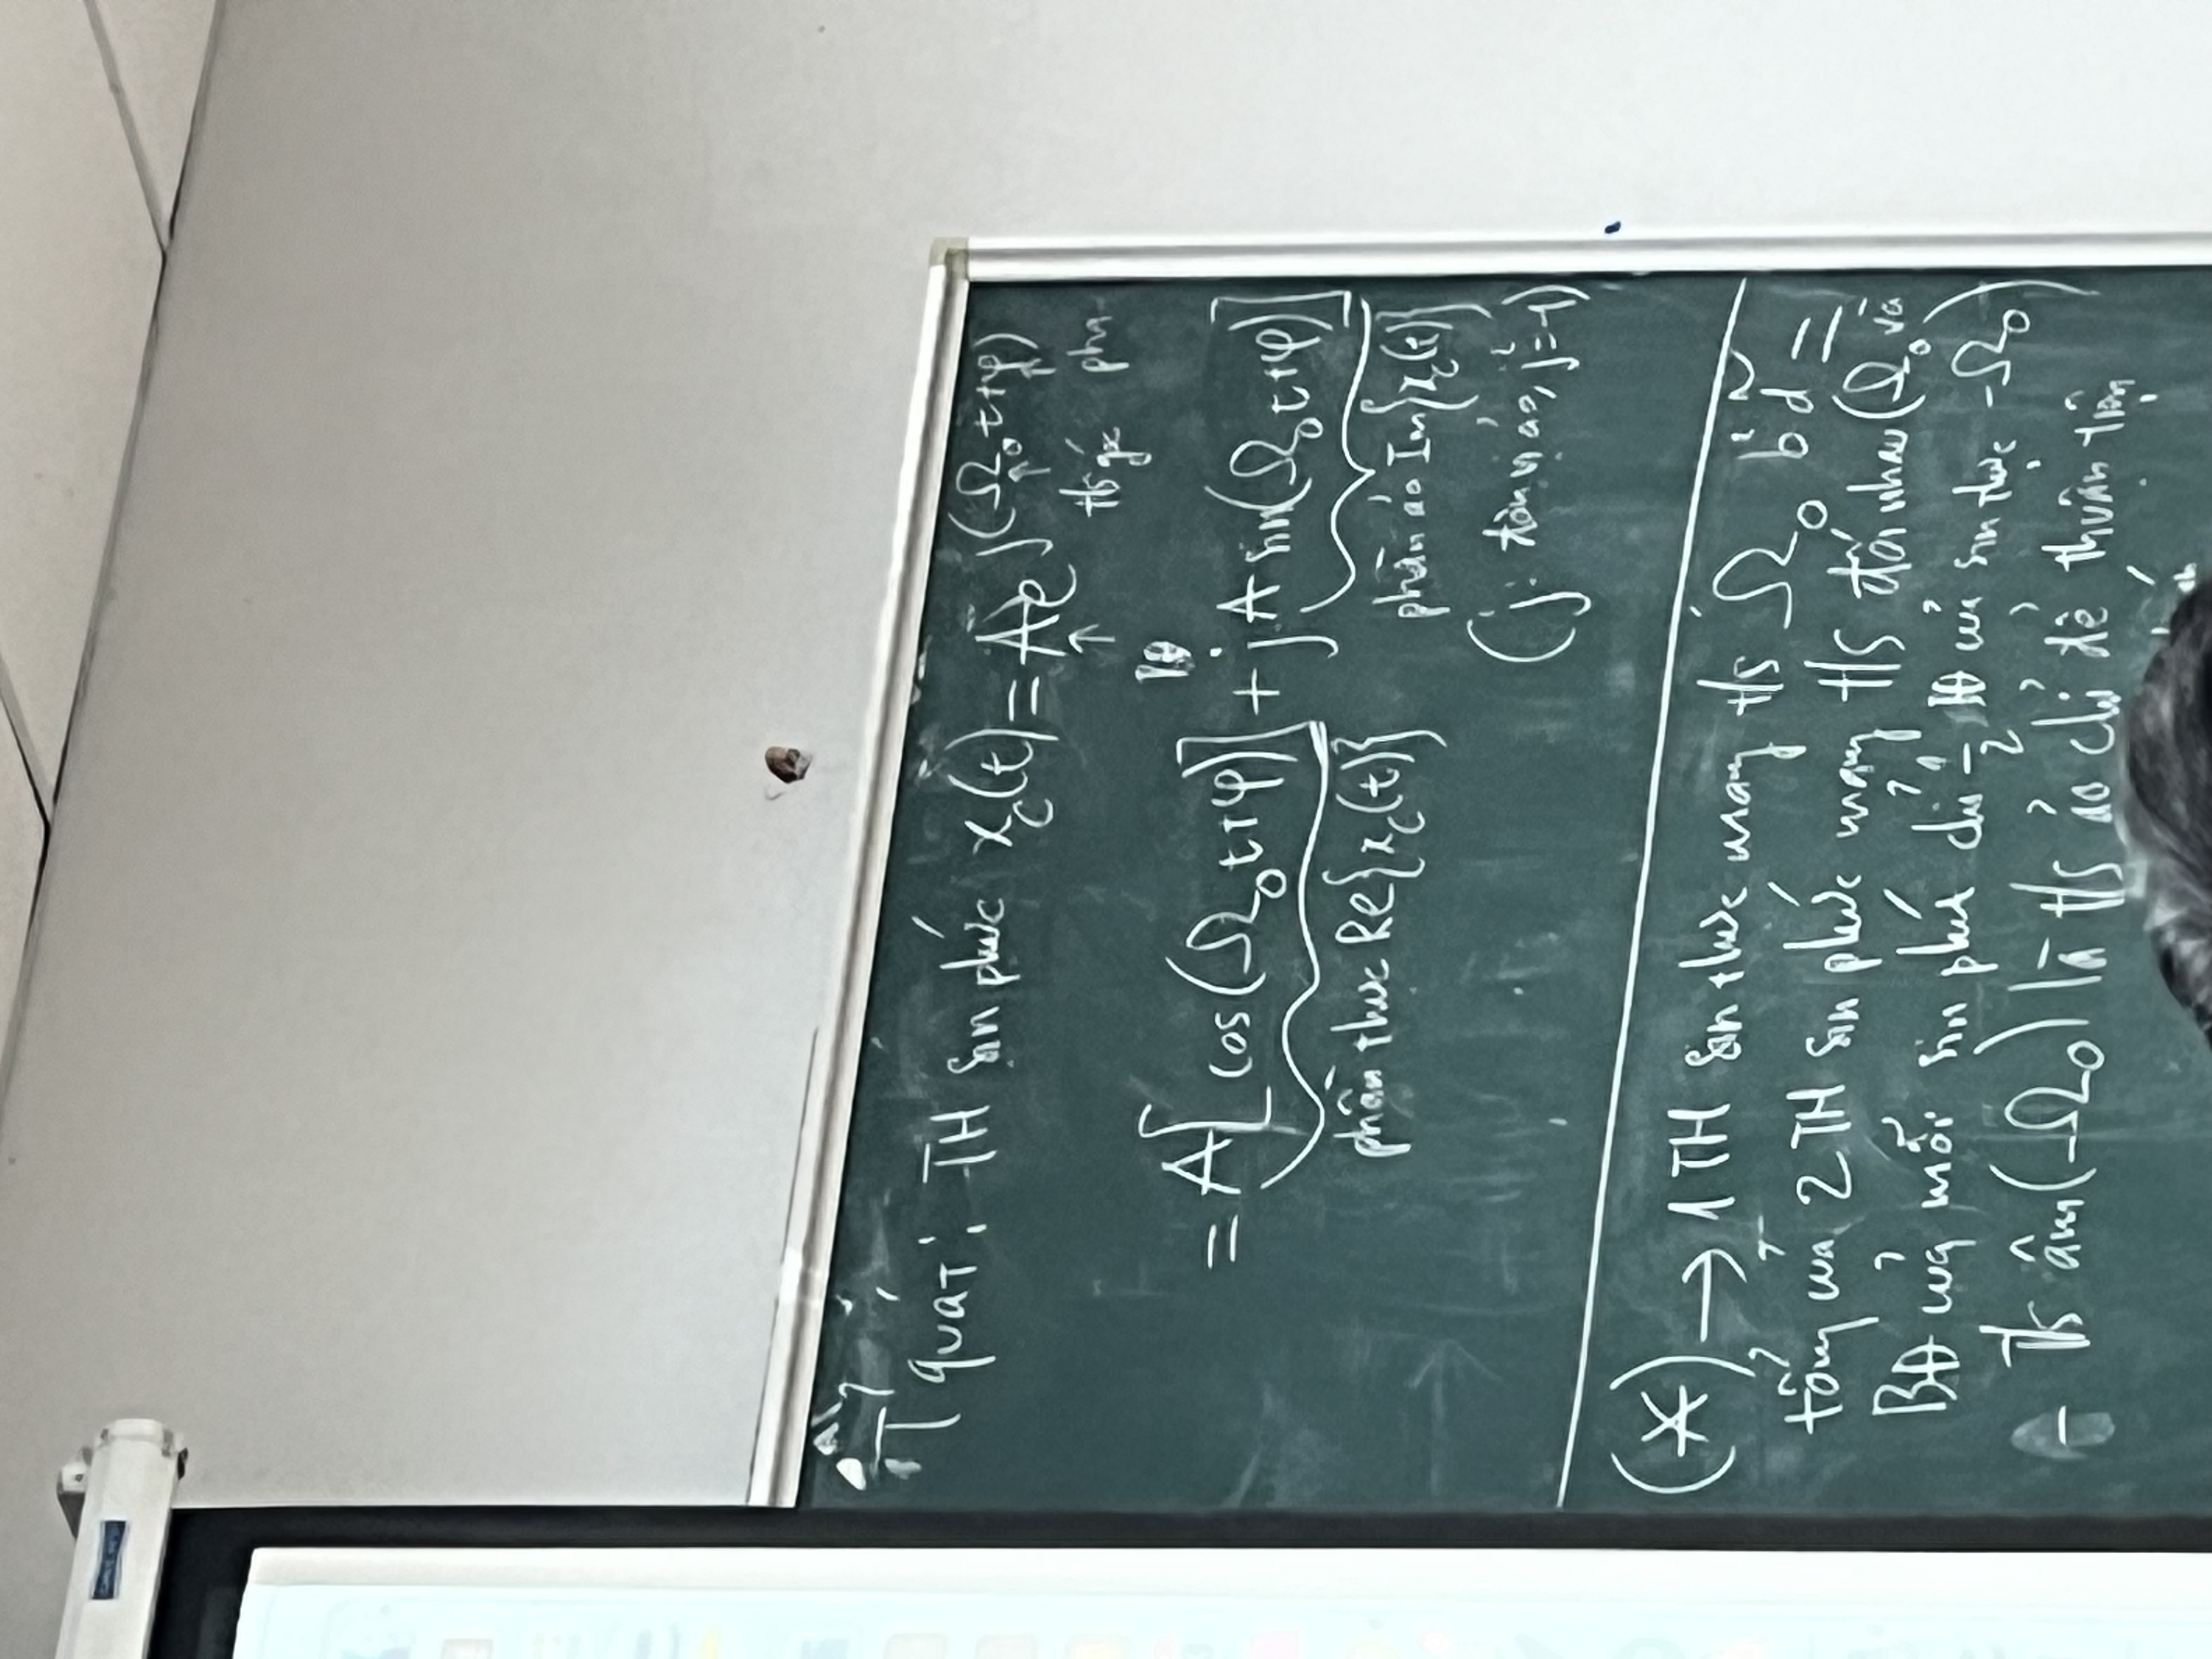 T quát: TH sin phức x_c(t) = A e^{j(Ω₀t+φ)}
↑ t/s góc pha
BĐ
= A[cos(Ω₀t+φ)] + j A sin(Ω₀t+φ)]
phần thực Re{x_c(t)} phần ảo Im{x_c(t)}
(j: đơn vị ảo, j² = -1)
(*) → 1 TH sin thực mang t/s Ω₀ b² d~ =
tổng của 2 TH sin phức mang t/s đối nhau (Ω₀ và
BĐ của mỗi sin phức chỉ 1/2 BĐ của sin thực -Ω₀)
- T/s âm (-Ω₀) là t/s ảo chỉ để thuận tiện